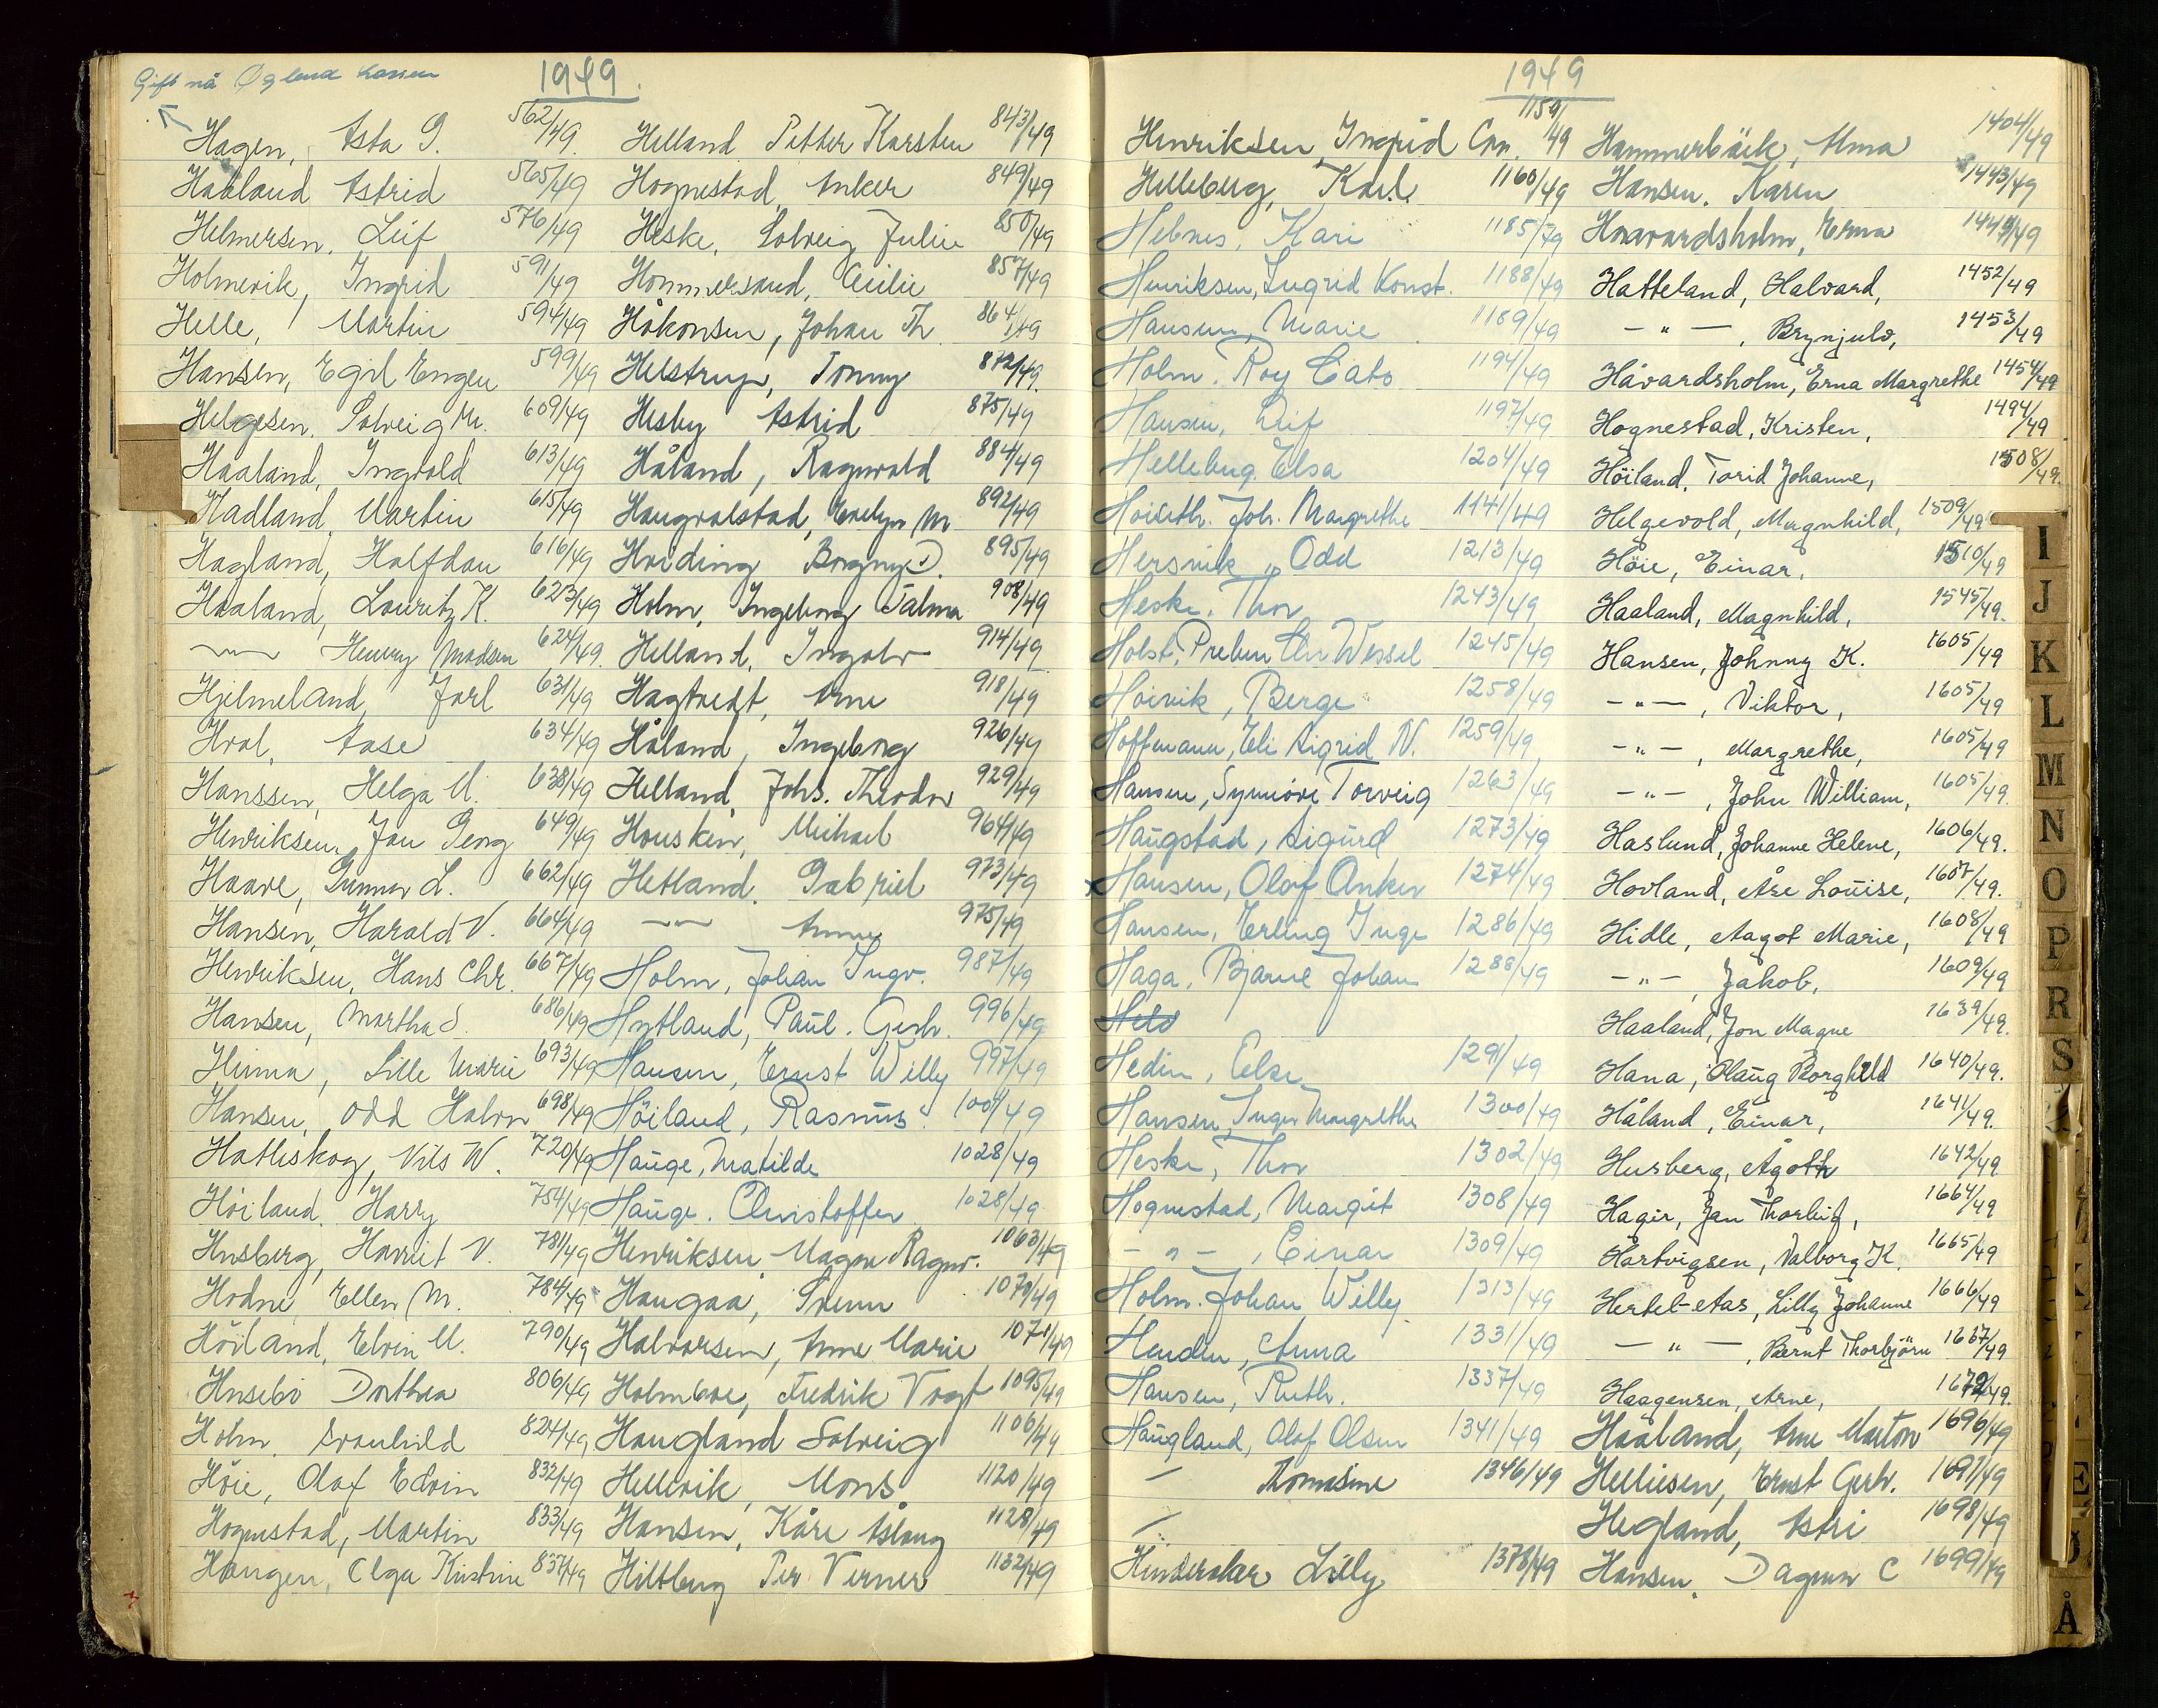 Gift nå Øgland Karsien
1949.
Hagen, Asta G. 562/49.
Haaland Astrid 565/49
Helmersen, Leif 576/49
Holmevik, Ingrid 591/49
Helle, Martin 594/49
Hansen, Egil Engen 599/49
Helgesen, Solveig M. 609/49
Haaland, Ingvald 613/49
Hadland, Martin 615/49
Hagland, Halfdan 616/49
Haaland, Lauritz K. 623/49
—"— Henry Madsen 624/49.
Hjelmeland, Jarl 631/49
Hval, Aase 634/49
Hanssen, Helga M. 638/49
Henriksen, Jan Georg 649/49
Haave, Gunnar L. 662/49
Hansen, Harald V. 664/49
Henriksen, Hans Chr. 667/49
Hansen, Martha S. 686/49
Hinna, Lille Marie 693/49
Hansen, Odd Halvor 698/49
Hatleskog, Nils W. 720/49
Höiland, Harry 754/49
Husberg, Harriet V. 781/49
Hodne, Ellen M. 784/49
Höiland, Elvin M. 790/49
Husebö Dorthea 806/49
Holm, Svanhild 824/49
Höie, Olaf Edvin 832/49
Hognestad, Martin 833/49
Haugen, Olga Kristine 837/49
Helland Petter Karsten 843/49
Hognestad, Anker 849/49
Heske, Solveig Julie 850/49
Hommersand, Cecilie 857/49
Håkonsen, Johan Th. 864/49
Helstrup, Tonny 872/49.
Hesby Astrid 875/49
Håland, Ragnvald 884/49
Haugvalstad, Evelyn M. 892/49
Hviding Borgny D. 895/49
Holm, Ingeborg Talma 908/49
Helland, Ingolv 914/49
Hagtvedt, Arne 918/49
Håland, Ingeborg 926/49
Helland, Johs. Theodor 929/49
Housken, Michael 964/49
Hetland, Gabriel 973/49
—"— Anna 975/49
Holm, Johan Ingv. 987/49
Hytland, Paul. Gerh. 996/49
Hansen, Ernst Willy 997/49
Höiland, Rasmus 1004/49
Hauge, Matilde 1028/49
Hauge, Christoffer 1028/49
Henriksen, Magne Ragnv. 1063/49
Haugaa, Svenn 1070/49
Halvorsen, Anne Marie 1071/49
Holmboe, Fredrik Vogt 1095/49
Haugland Solveig 1106/49
Hellvik, Mons 1120/49
Hansen, Kåre Aslaug 1128/49
Hiltberg Per Verner 1132/49
1949
Henriksen, Ingrid Con. 1159/49
Helleberg, Karl. 1160/49
Hebnes, Kari 1185/49
Henriksen, Ingrid Konst. 1188/49
Hansen, Marie 1189/49
Holm, Roy Cato 1194/49
Hansen, Leif 1197/49
Helleberg, Elsa 1204/49
Höiseth, Joh. Margrethe 1141/49
Hersvik, Odd 1213/49
Heske, Thor 1243/49
Holst, Preben Chr Wessel 1245/49
Höivik, Berge 1258/49
Hoffmann, Eli Sigrid N. 1259/49
Hansen, Synnöve Torveig 1263/49
Haugstad, Sigurd 1273/49
x Hansen, Olaf Anker 1274/49
Hansen, Erling Inge 1286/49
Haga, Bjarne Johan 1288/49
Helv
Hedin, Else 1291/49
Hansen, Inger Margrethe 1300/49
Heske, Thor 1302/49
Hognestad, Margit 1308/49
—"—, Einar 1309/49
Holm, Johan Willy 1313/49
Henden, Anna 1331/49
Hansen, Ruth. 1337/49
Haugland, Olaf Olsen 1341/49
— Thomasine 1346/49
—
Hinderaker Lilly 1378/49
Hammerbäck, Alma 1404/49
Hansen, Karen 1443/49
Haavardsholm, Erna 1449/49
Hatteland, Halvard, 1452/49
—"—, Brynjulv, 1453/49
Håvardsholm, Erna Margrethe 1454/49
Hognestad, Kristen, 1494/49
Höiland, Torid Johanne, 1508/49.
Helgevold, Magnhild, 1509/49
Höie, Einar, 1510/49
Haaland, Magnhild, 1545/49.
Hansen, Johnny K. 1605/49
—"—, Viktor, 1605/49
—"—, Margrethe, 1605/49
—"—, John William, 1605/49.
Haslund, Johanne Helene, 1606/49.
Hovland, Åse Louise, 1607/49.
Hidle, Aagot Marie, 1608/49
—"—, Jakob, 1609/49
Haaland, Jon Magne 1639/49.
Hana, Olaug Borghild 1640/49.
Håland, Einar, 1641/49.
Husberg, Ågoth 1642/49
Hager, Jan Thorleif, 1664/49
Hartvigsen, Valborg K. 1665/49
Hertel-Aas, Lilly Johanne 1666/49
—"—, Bernt Thorbjörn 1667/49
Haagensen, Arne, 1672/49.
Haaland, Arne Marton 1696/49
Helliesen, Ernst Gerh. 1697/49
Hegland, Astri 1698/49
Hansen, Dagrun C 1699/49
I
J
K
L
M
N
O
P
R
S
E
Å